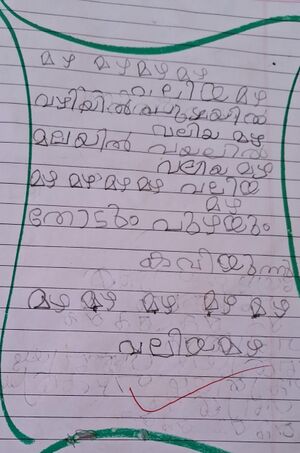 മഴ മഴ മഴ മഴ
വലിയ മഴ
വഴിയിൽ പുഴയിൽ
വലിയ മഴ
മലയിൽ വയലിൽ
വലിയ മഴ
മഴ മഴ മഴ മഴ വലിയ
മഴ
തോടും പുഴയും
കവിയുന്നു
മഴ മഴ മഴ മഴ മഴ
വലിയമഴ